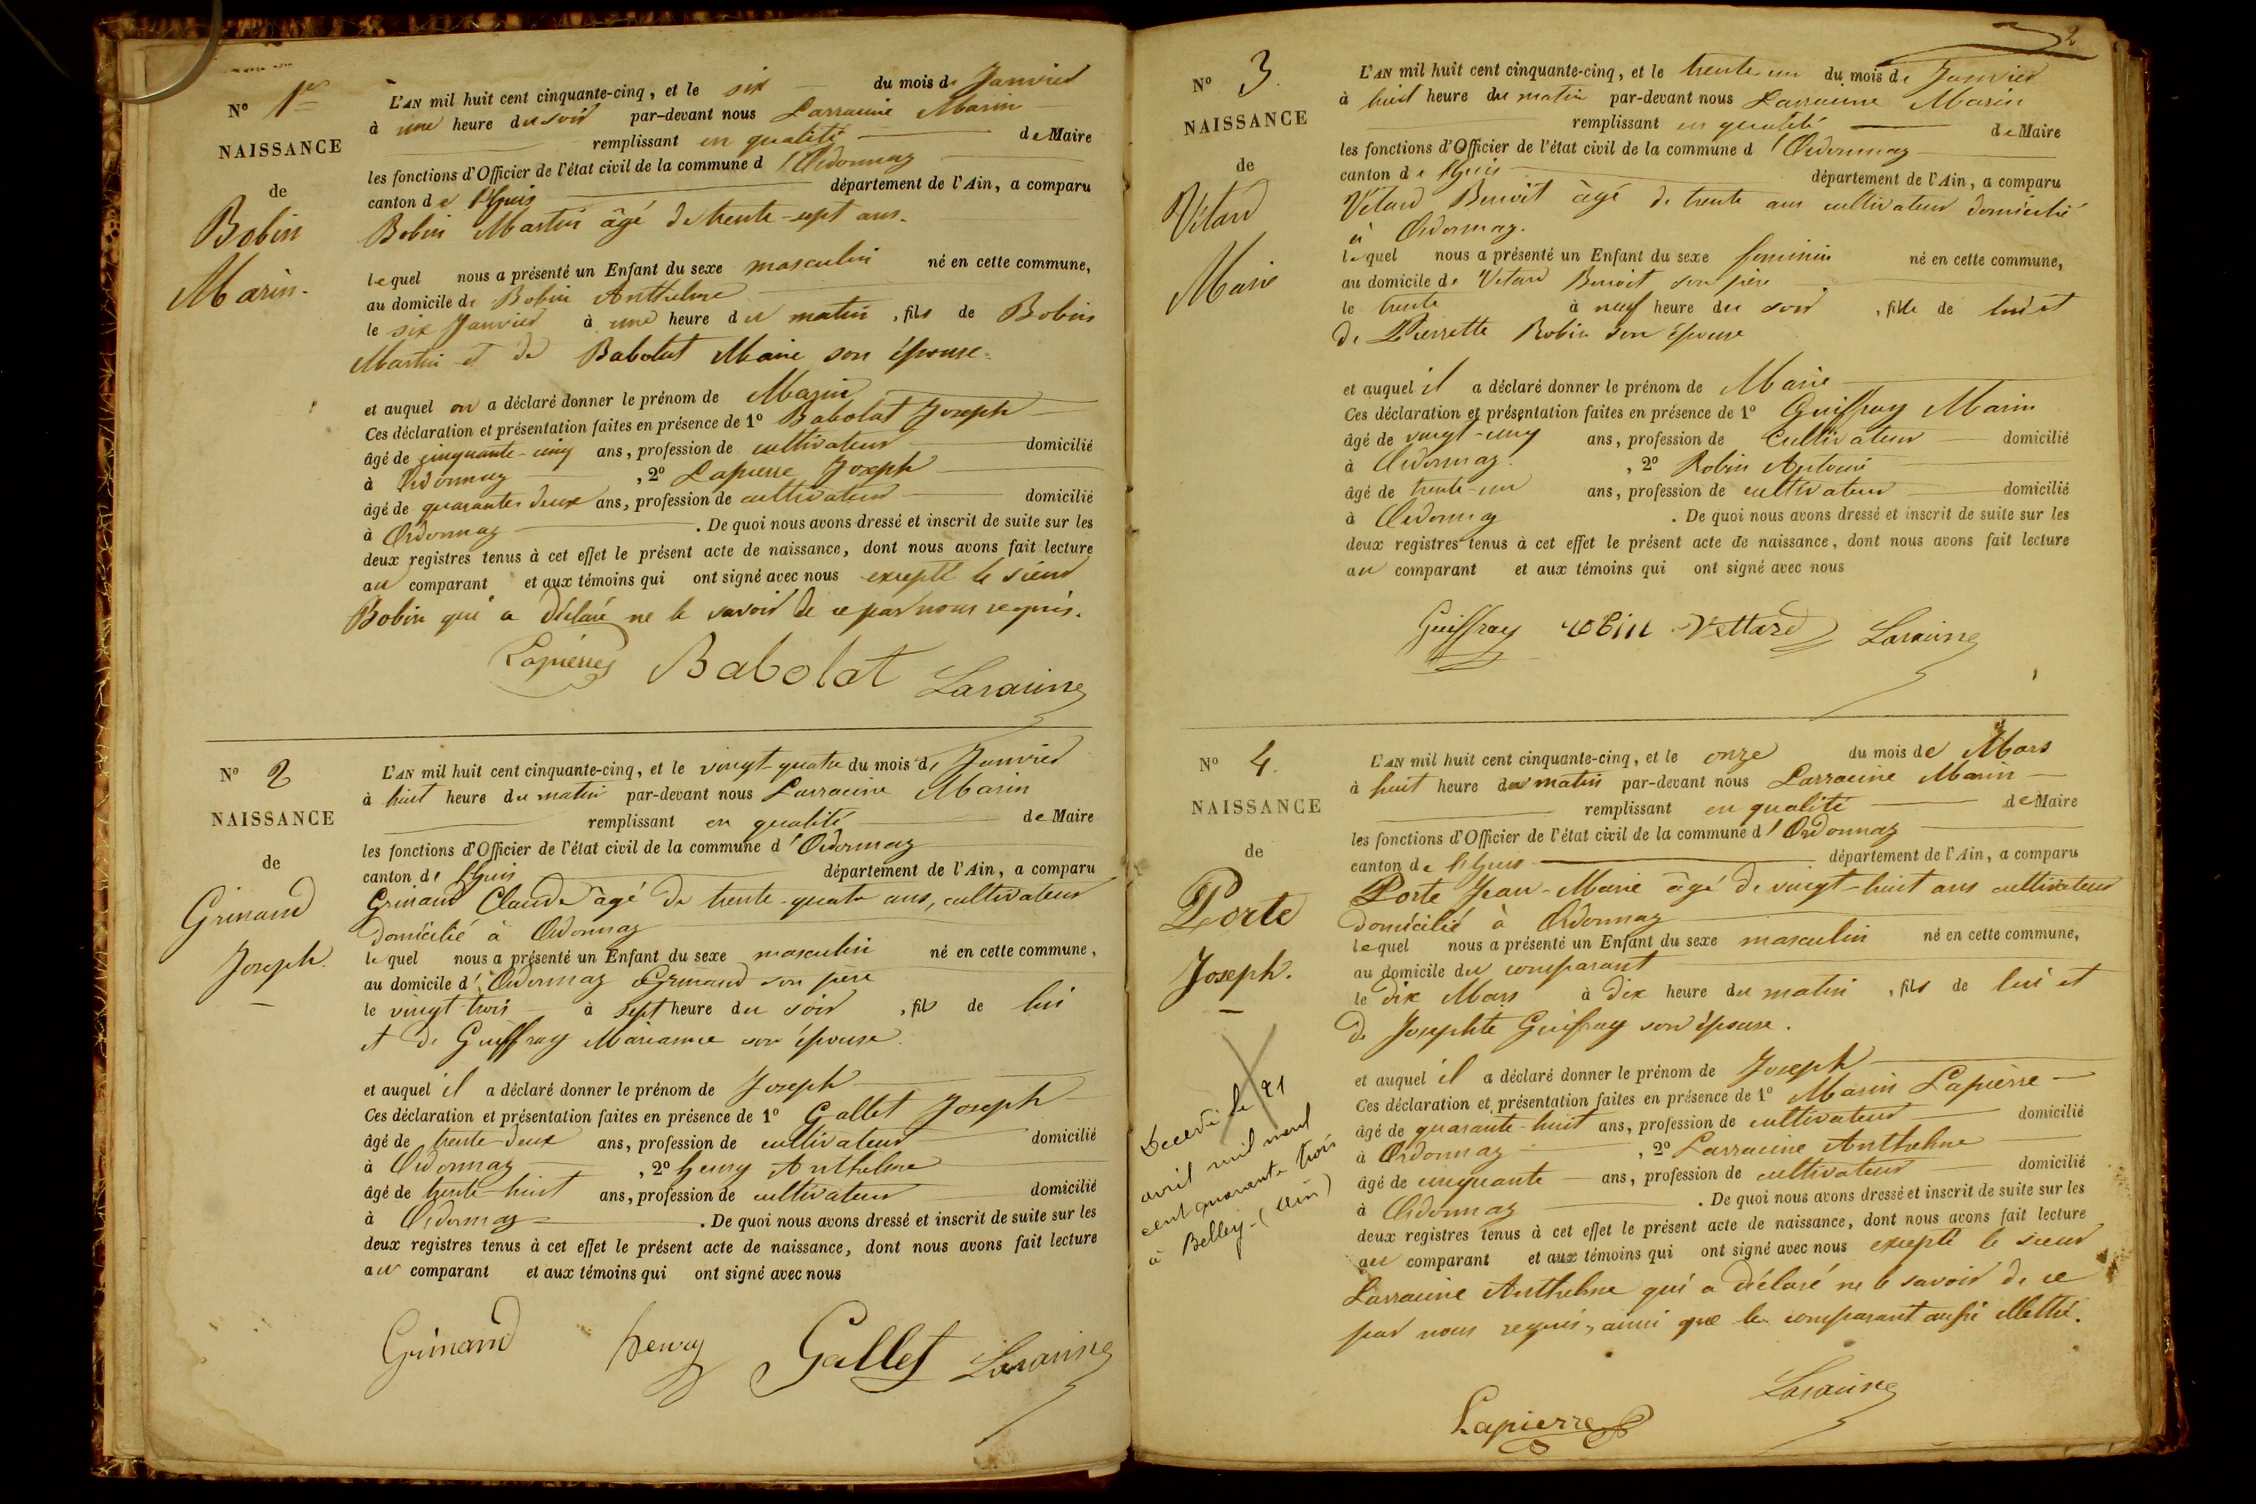 N° 1er
NAISSANCE
de
Bobin
Marin.
L'AN mil huit cent cinquante-cinq, et le six du mois de Janvier
à une heure du soir par-devant nous Larracine Marin
remplissant en qualité de Maire
les fonctions d'Officier de l'état civil de la commune d'Ordonnaz
canton de lhuis département de l'Ain, a comparu
Bobin Martin âgé de trente-sept ans.
lequel nous a présenté un Enfant du sexe masculin né en cette commune,
au domicile de Bobin Anthelme
le six Janvier à une heure du matin, fils de Bobin
Martin et de Babolat Marie son épouse.
et auquel on a déclaré donner le prénom de Marin
Ces déclaration et présentation faites en présence de 1° Babolat Joseph
âgé de cinquante-cinq ans, profession de cultivateur domicilié
à Ordonnaz, 2° Lapierre Joseph
âgé de quarante deux ans, profession de cultivateur domicilié
à Ordonnaz. De quoi nous avons dressé et inscrit de suite sur les
deux registres tenus à cet effet le présent acte de naissance, dont nous avons fait lecture
au comparant et aux témoins qui ont signé avec nous excepté le sieur
Bobin qui a déclaré ne le savoir de ce par nous requis.
Lapierre Babolat Laracine
N° 2
NAISSANCE
de
Grinand
Joseph.
L'AN mil huit cent cinquante-cinq, et le vingt-quatre du mois de Janvier
à huit heure du matin par-devant nous Larracine Marin
remplissant en qualité de Maire
les fonctions d'Officier de l'état civil de la commune d'Ordonnaz
canton de lhuis département de l'Ain, a comparu
Grinand Claude âgé de trente-quatre ans, cultivateur
domicilié à Ordonnaz
lequel nous a présenté un Enfant du sexe masculin né en cette commune,
au domicile d'Ordonnaz Grinand son père
le vingt trois à sept heure du soir, fils de lui
et de Guiffray Marianne son épouse.
et auquel il a déclaré donner le prénom de Joseph
Ces déclaration et présentation faites en présence de 1° Gallet Joseph
âgé de trente-deux ans, profession de cultivateur domicilié
à Ordonnaz, 2° henry Anthelme
âgé de trente-huit ans, profession de cultivateur domicilié
à Ordonnaz. De quoi nous avons dressé et inscrit de suite sur les
deux registres tenus à cet effet le présent acte de naissance, dont nous avons fait lecture
au comparant et aux témoins qui ont signé avec nous
Grinand henry Gallet Laracine
2
N° 3.
NAISSANCE
de
Vétard
Marie
L'AN mil huit cent cinquante-cinq, et le trente un du mois de Janvier
à huit heure du matin par-devant nous Larracine Marin
remplissant en qualité de Maire
les fonctions d'Officier de l'état civil de la commune d'Ordonnaz
canton de lhuis département de l'Ain, a comparu
Vétard Benoit âgé de trente ans cultivateur domicilié
à Ordonnaz.
lequel nous a présenté un Enfant du sexe féminin né en cette commune,
au domicile de Vetard Benoit son père
le trente à neuf heure du soir, fille de lui et
de Pierrette Robin son épouse
et auquel il a déclaré donner le prénom de Marie
Ces déclaration et présentation faites en présence de 1° Guiffray Marin
âgé de vingt-cinq ans, profession de Cultivateur domicilié
à Ordonnaz., 2° Robin Antoine
âgé de trente-un ans, profession de cultivateur domicilié
à Ordonnaz. De quoi nous avons dressé et inscrit de suite sur les
deux registres tenus à cet effet le présent acte de naissance, dont nous avons fait lecture
au comparant et aux témoins qui ont signé avec nous
Guiffray robin Vettard Laracine
N° 4.
NAISSANCE
de
Porte
Joseph.
Décédé le 21
avril mil neuf
cent quarante trois
à Belley-(Ain)
L'AN mil huit cent cinquante-cinq, et le onze du mois de Mars
à huit heure du matin par-devant nous Larracine Marin
remplissant en qualité de Maire
les fonctions d'Officier de l'état civil de la commune d'Ordonnaz
canton de lhuis département de l'Ain, a comparu
Porte Jean-Marie âgé de vingt-huit ans cultivateur
domicilié à Ordonnaz
lequel nous a présenté un Enfant du sexe masculin né en cette commune,
au domicile du comparant
le dix Mars à dix heure du matin, fils de lui et
de Josephte Guifray son épouse.
et auquel il a déclaré donner le prénom de Joseph
Ces déclaration et présentation faites en présence de 1° Marin Lapierre
âgé de quarante-huit ans, profession de cultivateur domicilié
à Ordonnaz, 2° Larracine Anthelme
âgé de cinquante ans, profession de cultivateur domicilié
à Ordonnaz. De quoi nous avons dressé et inscrit de suite sur les
deux registres tenus à cet effet le présent acte de naissance, dont nous avons fait lecture
au comparant et aux témoins qui ont signé avec nous excepté le sieur
Larracine Anthelme qui a déclaré ne le savoir de ce
par nous requis, ainsi que le comparant aussi illettré.
Laracine
Lapierre